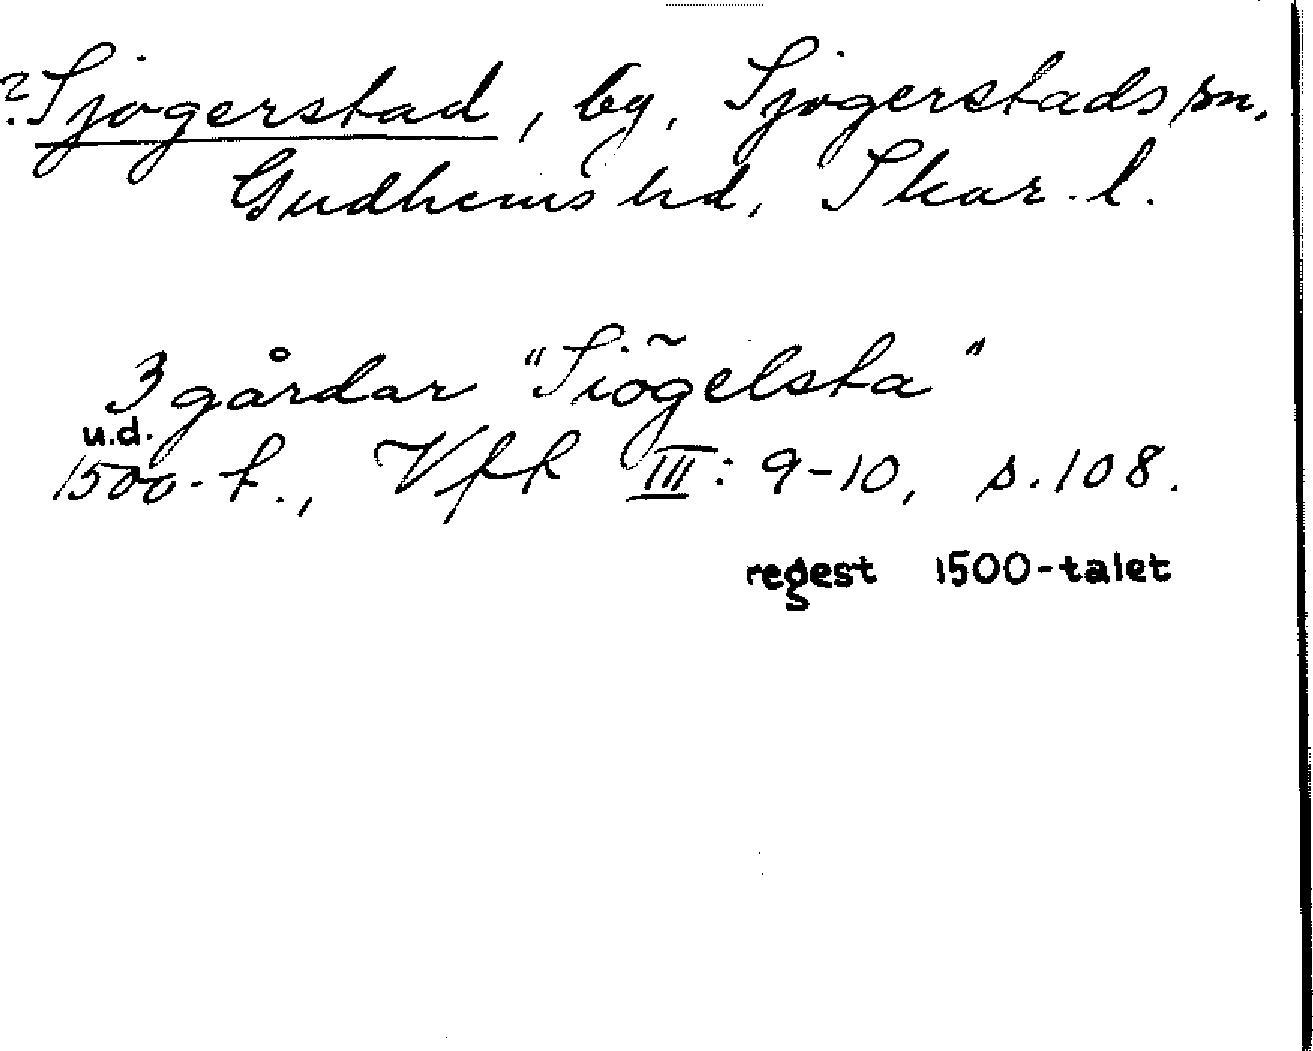 ?Sjogerstad, by, Sjogerstads sn,
Gudhems hd, Skar. l.
3 gårdar "Siõgelsta"
u.d.
1500-t., Vfk III: 9-10, s. 108.
regest 1500-talet